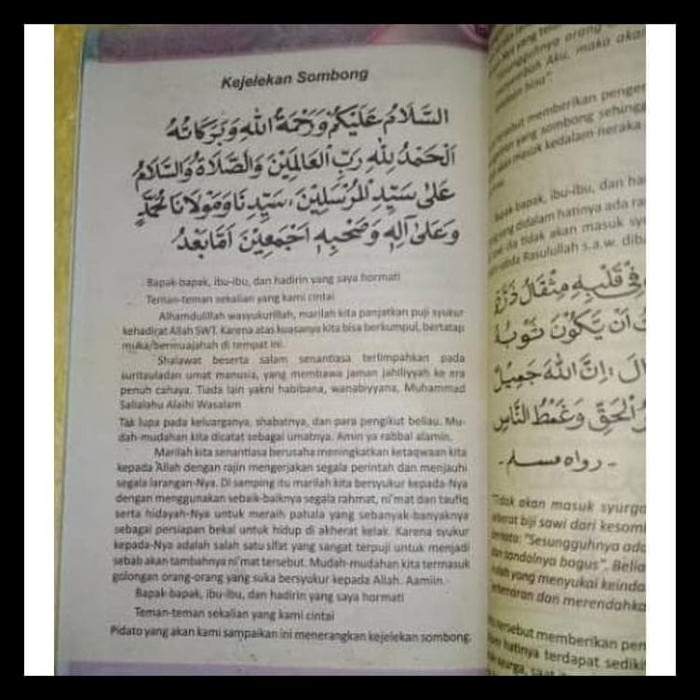 Kejelekan Sombong
السَّلَامُ عَلَيْكُمْ وَرَحْمَةُ اللهِ وَبَرَكَاتُهُ
اَلْحَمْدُ لِلّٰهِ رَبِّ الْعَالَمِيْنَ وَالصَّلَاةُ وَالسَّلَامُ
عَلَى سَيِّدِ الْمُرْسَلِيْنَ، سَيِّدِنَا وَمَوْلَانَا مُحَمَّدٍ
وَعَلَى اٰلِهِ وَصَحْبِهِ اَجْمَعِيْنَ اَمَّا بَعْدُ
Bapak-bapak, ibu-ibu, dan hadirin yang saya hormati
Teman-teman sekalian yang kami cintai
Alhamdulillah wasyukurillah, marilah kita panjatkan puji syukur
kehadirat Allah SWT. Karena atas kuasanya kita bisa berkumpul, bertatap
muka/bermuajahah di tempat ini.
Shalawat beserta salam senantiasa terlimpahkan pada
suritauladan umat manusia, yang membawa jaman jahiliyyah ke era
penuh cahaya. Tiada lain yakni habibana, wanabiyyana, Muhammad
Sallalahu Alaihi Wasalam
Tak lupa pada keluarganya, shabatnya, dan para pengikut beliau. Mu-
dah-mudahan kita dicatat sebagai umatnya. Amin ya rabbal alamin.
Marilah kita senantiasa berusaha meningkatkan ketaqwaan kita
kepada Allah dengan rajin mengerjakan segala perintah dan menjauhi
segala larangan-Nya. Di samping itu marilah kita bersyukur kepada-Nya
dengan menggunakan sebaik-baiknya segala rahmat, ni'mat dan taufiq
serta hidayah-Nya untuk meraih pahala yang sebanyak-banyaknya
sebagai persiapan bekal untuk hidup di akherat kelak. Karena syukur
kepada-Nya adalah salah satu sifat yang sangat terpuji untuk menjadi
sebab akan tambahnya ni'mat tersebut. Mudah-mudahan kita termasuk
golongan orang-orang yang suka bersyukur kepada Allah. Aamiin.
Bapak-bapak, ibu-ibu, dan hadirin yang saya hormati
Teman-teman sekalian yang kami cintai
Pidato yang akan kami sampaikan ini menerangkan kejelekan sombong.
orang
Aku, maka akan
tersebut memberikan
yang sombong sehingg
masuk kedalam neraka
bapak, ibu-ibu, dan
didalam hatinya ada
tidak akan masuk
Rasulullah s.a.w.
فِيْ قَلْبِهِ مِثْقَالُ
اَنْ يَكُوْنَ ثَوْبُهُ
اِنَّ اللهَ جَمِيْلٌ
الْحَقِّ وَغَمْطُ النَّاسِ
- رواه مسلم -
"Tidak akan masuk syurga
biji sawi dari
"Sesungguhnya
sandalnya bagus".
yang menyukai
dan merendahka
tersebut memberikan
hatinya terdapat